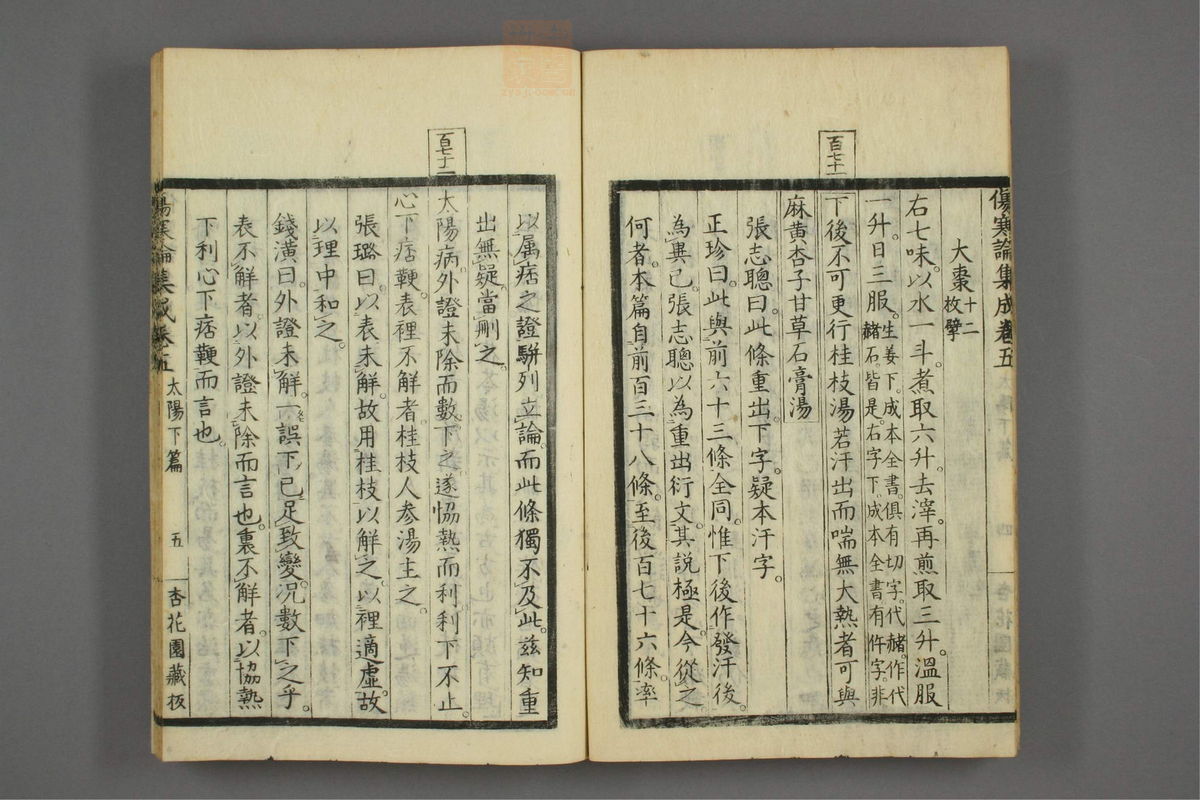 傷寒論集成卷五
大棗十二枚擘
右七味。以水一斗。煮取六升。去滓。再煎取三升。溫服
一升。日三服。生姜下。成本全書。俱有切字。代赭。作代
赭石皆是。右字下。成本全書有件字。非
百七十一
下後不可更行桂枝湯若汗出而喘無大熱者可與
麻黄杏子甘草石膏湯
張志聰曰。此條重出。下字。疑本汗字。
正珍曰。此與前六十三條全同。惟下後作發汗後。
為異已。張志聰以為重出衍文。其說極是。今從之。
何者。本篇自前百三十八條。至後百七十六條。率
以属痞之證駢列立論。而此條獨不及此。茲知重
出無疑。當刪之。
百七十二
太陽病。外證未除而數下之。遂恊熱而利。利下不止。
心下痞鞕。表裡不解者。桂枝人参湯主之。
張璐曰。以表未解。故用桂枝以解之。以裡適虛。故
以理中和之。
錢潢曰。外證未解。一誤下。已足致變。况數下之乎。
表不解者。以外證未除而言也。裏不解者。以協熱
下利心下痞鞕而言也。
傷寒論集成卷五
太陽下篇
五
杏花園藏板
zysj.com.cn